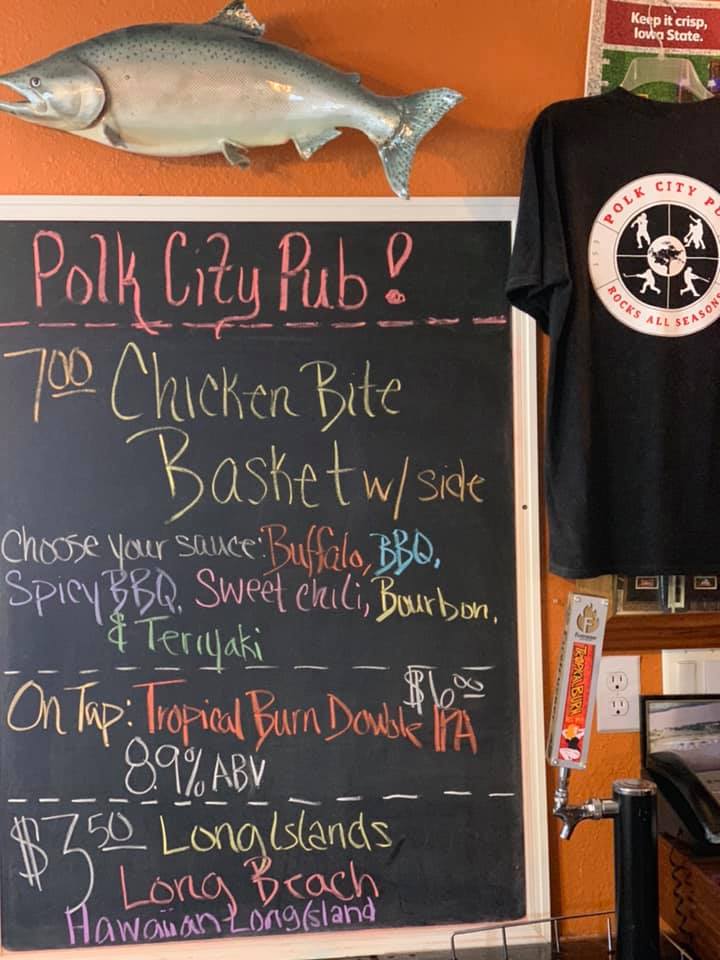 Keep it crisp,
Iowa State.
POLK CITY PU
ROCKS ALL SEASONS
Polk City Pub!
7.00 Chicken Bite
Basket w/ side
Choose your sauce: Buffalo, BBQ,
Spicy BBQ, Sweet chili, Bourbon,
& Teriyaki
$6.00
On Tap: Tropical Burn Double IPA
8.9% ABV
$3.50 Long Islands
Long Beach
Hawaiian Long Island
TROPICAL BURN